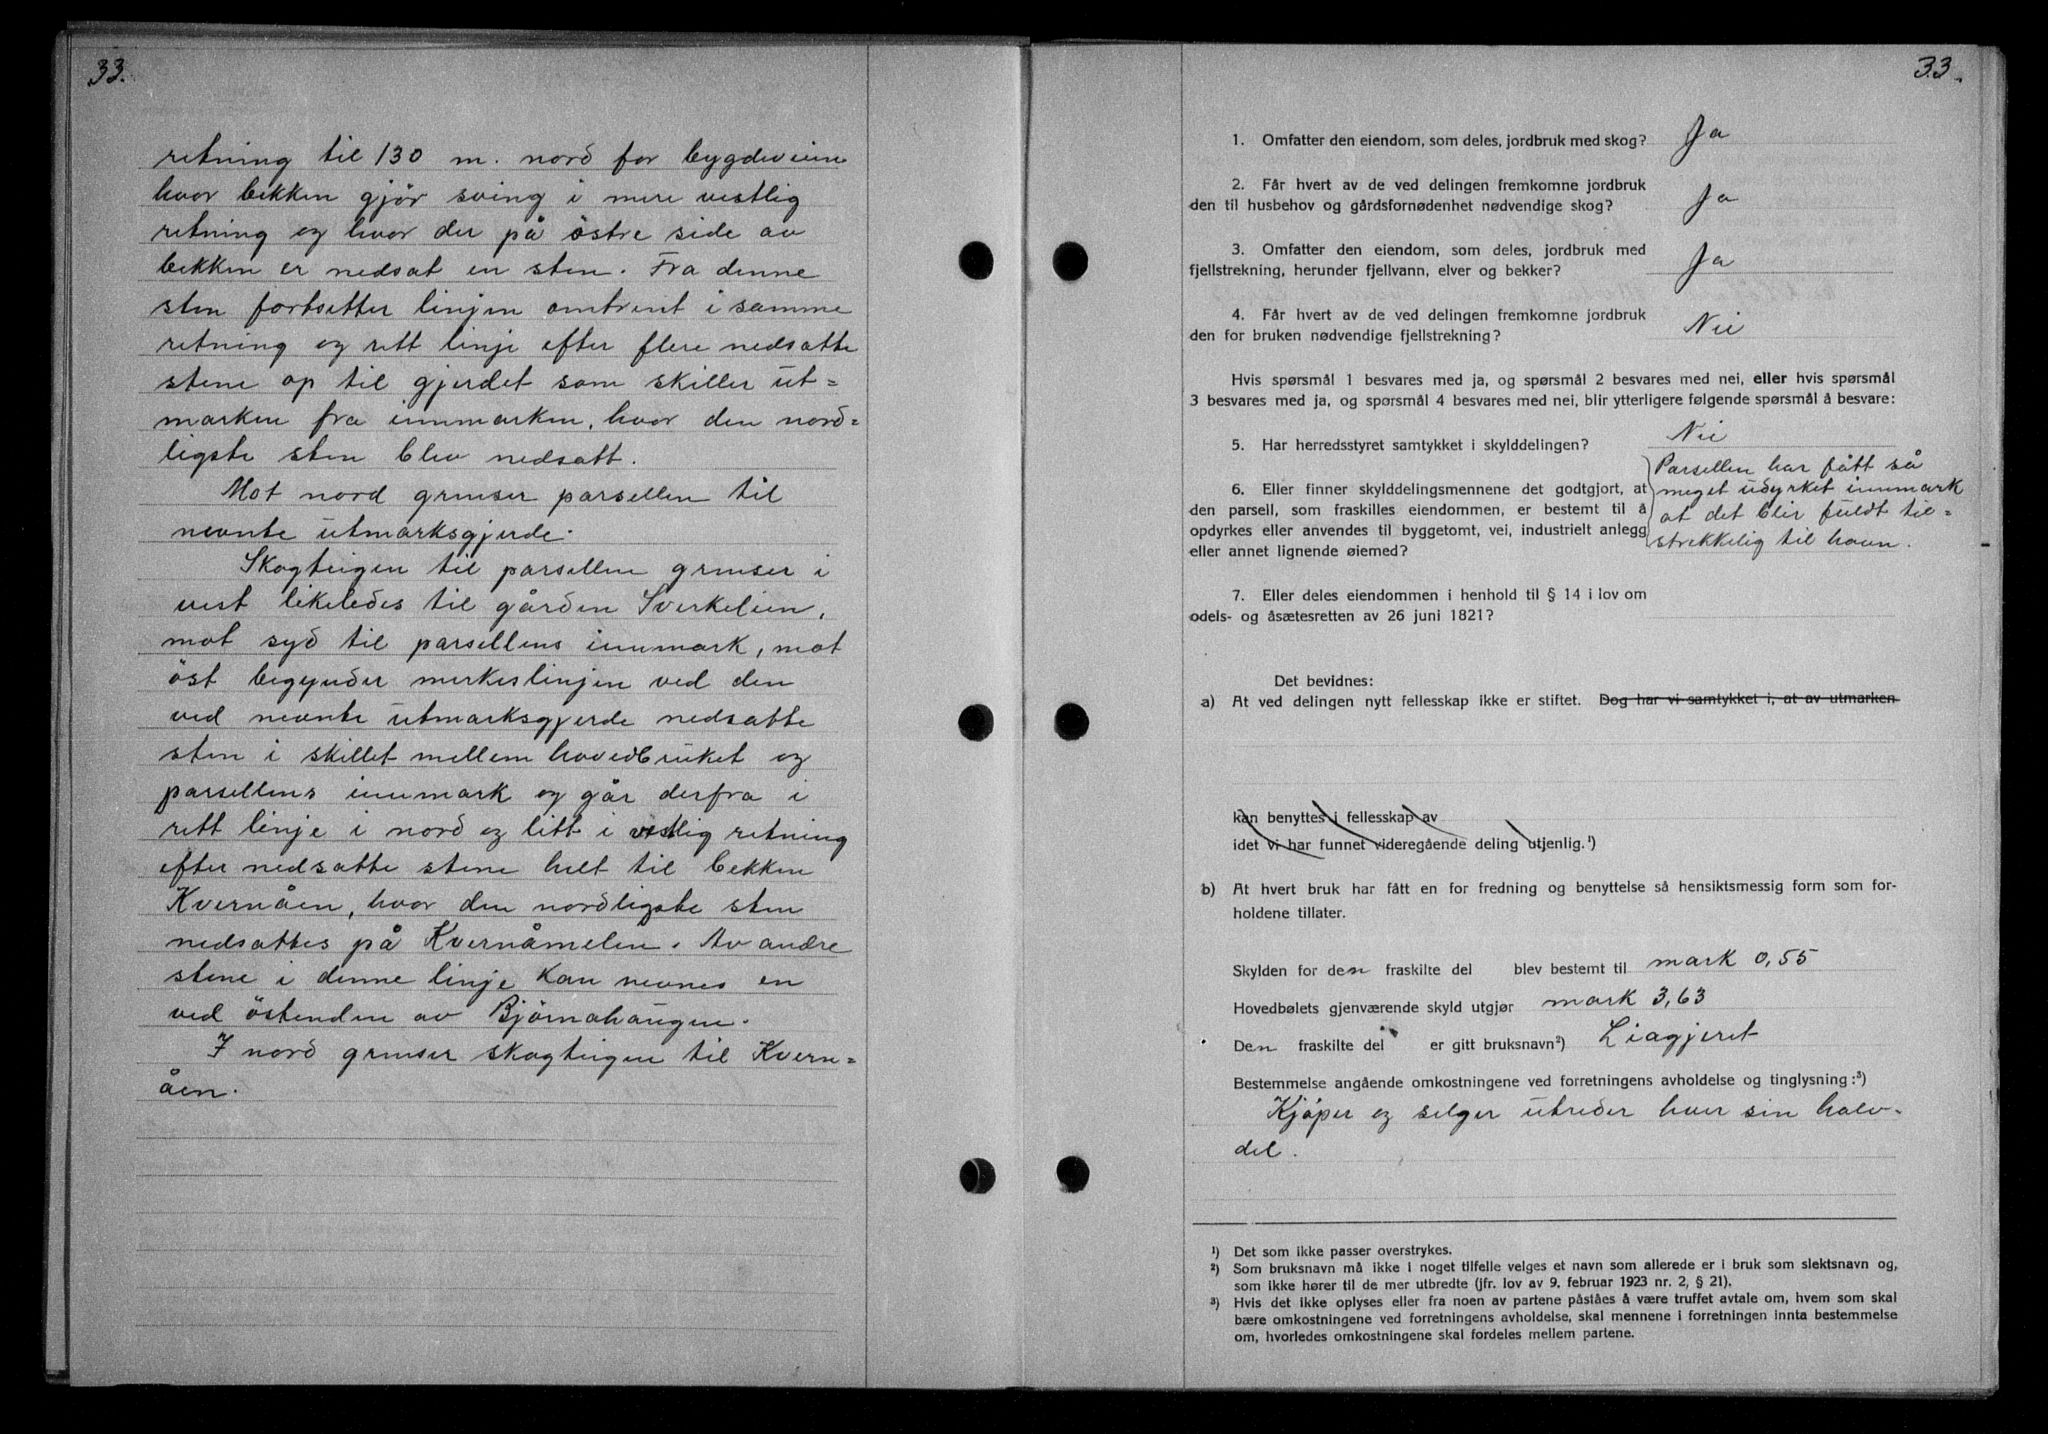 33.
retning til 130 m. nord for bygdeveien
hvor bekken gjør sving i mere vestlig
retning og hvor der på østre side av
bekken er nedsat en sten. Fra denne
sten fortsetter linjen omtrent i samme
retning og rett linje efter flere nedsatte
stene op til gjerdet som skiller ut=
marken fra innmarken, hvor den nord=
ligste sten blev nedsatt.
Mot nord grenser parsellen til
nevnte utmarksgjerde.
Skogteigen til parsellen grenser i
vest likeledes til gården Sverkelien,
mot syd til parsellens innmark, mot
øst begynder merkeslinjen ved den
ved nevnte utmarksgjerde nedsatte
sten i skillet mellem hovedbruket og
parsellens innmark og går derfra i
rett linje i nord og litt i vestlig retning
efter nedsatte stene helt til bekken
Kvernåen, hvor den nordligste sten
nedsattes på Kvernåmelen. Av andre
stene i denne linje kan nevnes en
ved østenden av Bjørnahaugen.
I nord grenser skogteigen til Kvern=
åen.
33.
1. Omfatter den eiendom, som deles, jordbruk med skog? Ja
2. Får hvert av de ved delingen fremkomne jordbruk
den til husbehov og gårdsfornødenhet nødvendige skog? Ja
3. Omfatter den eiendom, som deles, jordbruk med
fjellstrekning, herunder fjellvann, elver og bekker? Ja
4. Får hvert av de ved delingen fremkomne jordbruk
den for bruken nødvendige fjellstrekning? Nei
Hvis spørsmål 1 besvares med ja, og spørsmål 2 besvares med nei, eller hvis spørsmål
3 besvares med ja, og spørsmål 4 besvares med nei, blir ytterligere følgende spørsmål å besvare:
5. Har herredsstyret samtykket i skylddelingen? Nei
6. Eller finner skylddelingsmennene det godtgjort, at
den parsell, som fraskilles eiendommen, er bestemt til å
opdyrkes eller anvendes til byggetomt, vei, industrielt anlegg
eller annet lignende øiemed?
Parsellen har fått så
meget udyrket innmark
at det blir fuldt til=
strekkelig til havn.
7. Eller deles eiendommen i henhold til § 14 i lov om
odels- og åsætesretten av 26 juni 1821?
Det bevidnes:
a) At ved delingen nytt fellesskap ikke er stiftet. Dog har vi samtykket i, at av utmarken
kan benyttes i fellesskap av
idet vi har funnet videregående deling utjenlig.¹)
b) At hvert bruk har fått en for fredning og benyttelse så hensiktsmessig form som for-
holdene tillater.
Skylden for den fraskilte del blev bestemt til mark 0,55
Hovedbølets gjenværende skyld utgjør mark 3,63
Den fraskilte del er gitt bruksnavn²) Liagjeret
Bestemmelse angående omkostningene ved forretningens avholdelse og tinglysning:³)
Kjøper og selger utreder hver sin halv-
del.
¹) Det som ikke passer overstrykes.
²) Som bruksnavn må ikke i noget tilfelle velges et navn som allerede er i bruk som slektsnavn og,
som ikke hører til de mer utbredte (jfr. lov av 9. februar 1923 nr. 2, § 21).
³) Hvis det ikke oplyses eller fra noen av partene påståes å være truffet avtale om, hvem som skal
bære omkostningene ved forretningens avholdelse, skal mennene i forretningen innta bestemmelse
om, hvorledes omkostningene skal fordeles mellem partene.